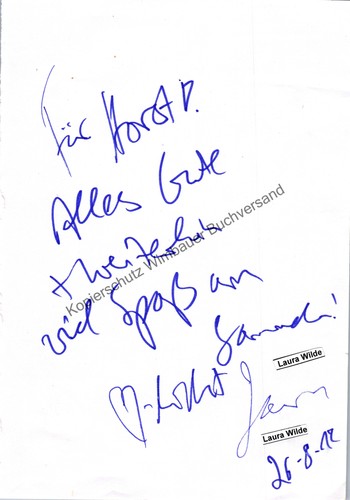 Für Horst P.
Alles Gute
+ weiterhin
Kopierschutz Wimbauer Buchversand
viel Spaß am
Sammeln!
Laura Wilde
Laura Wilde
26-8-12